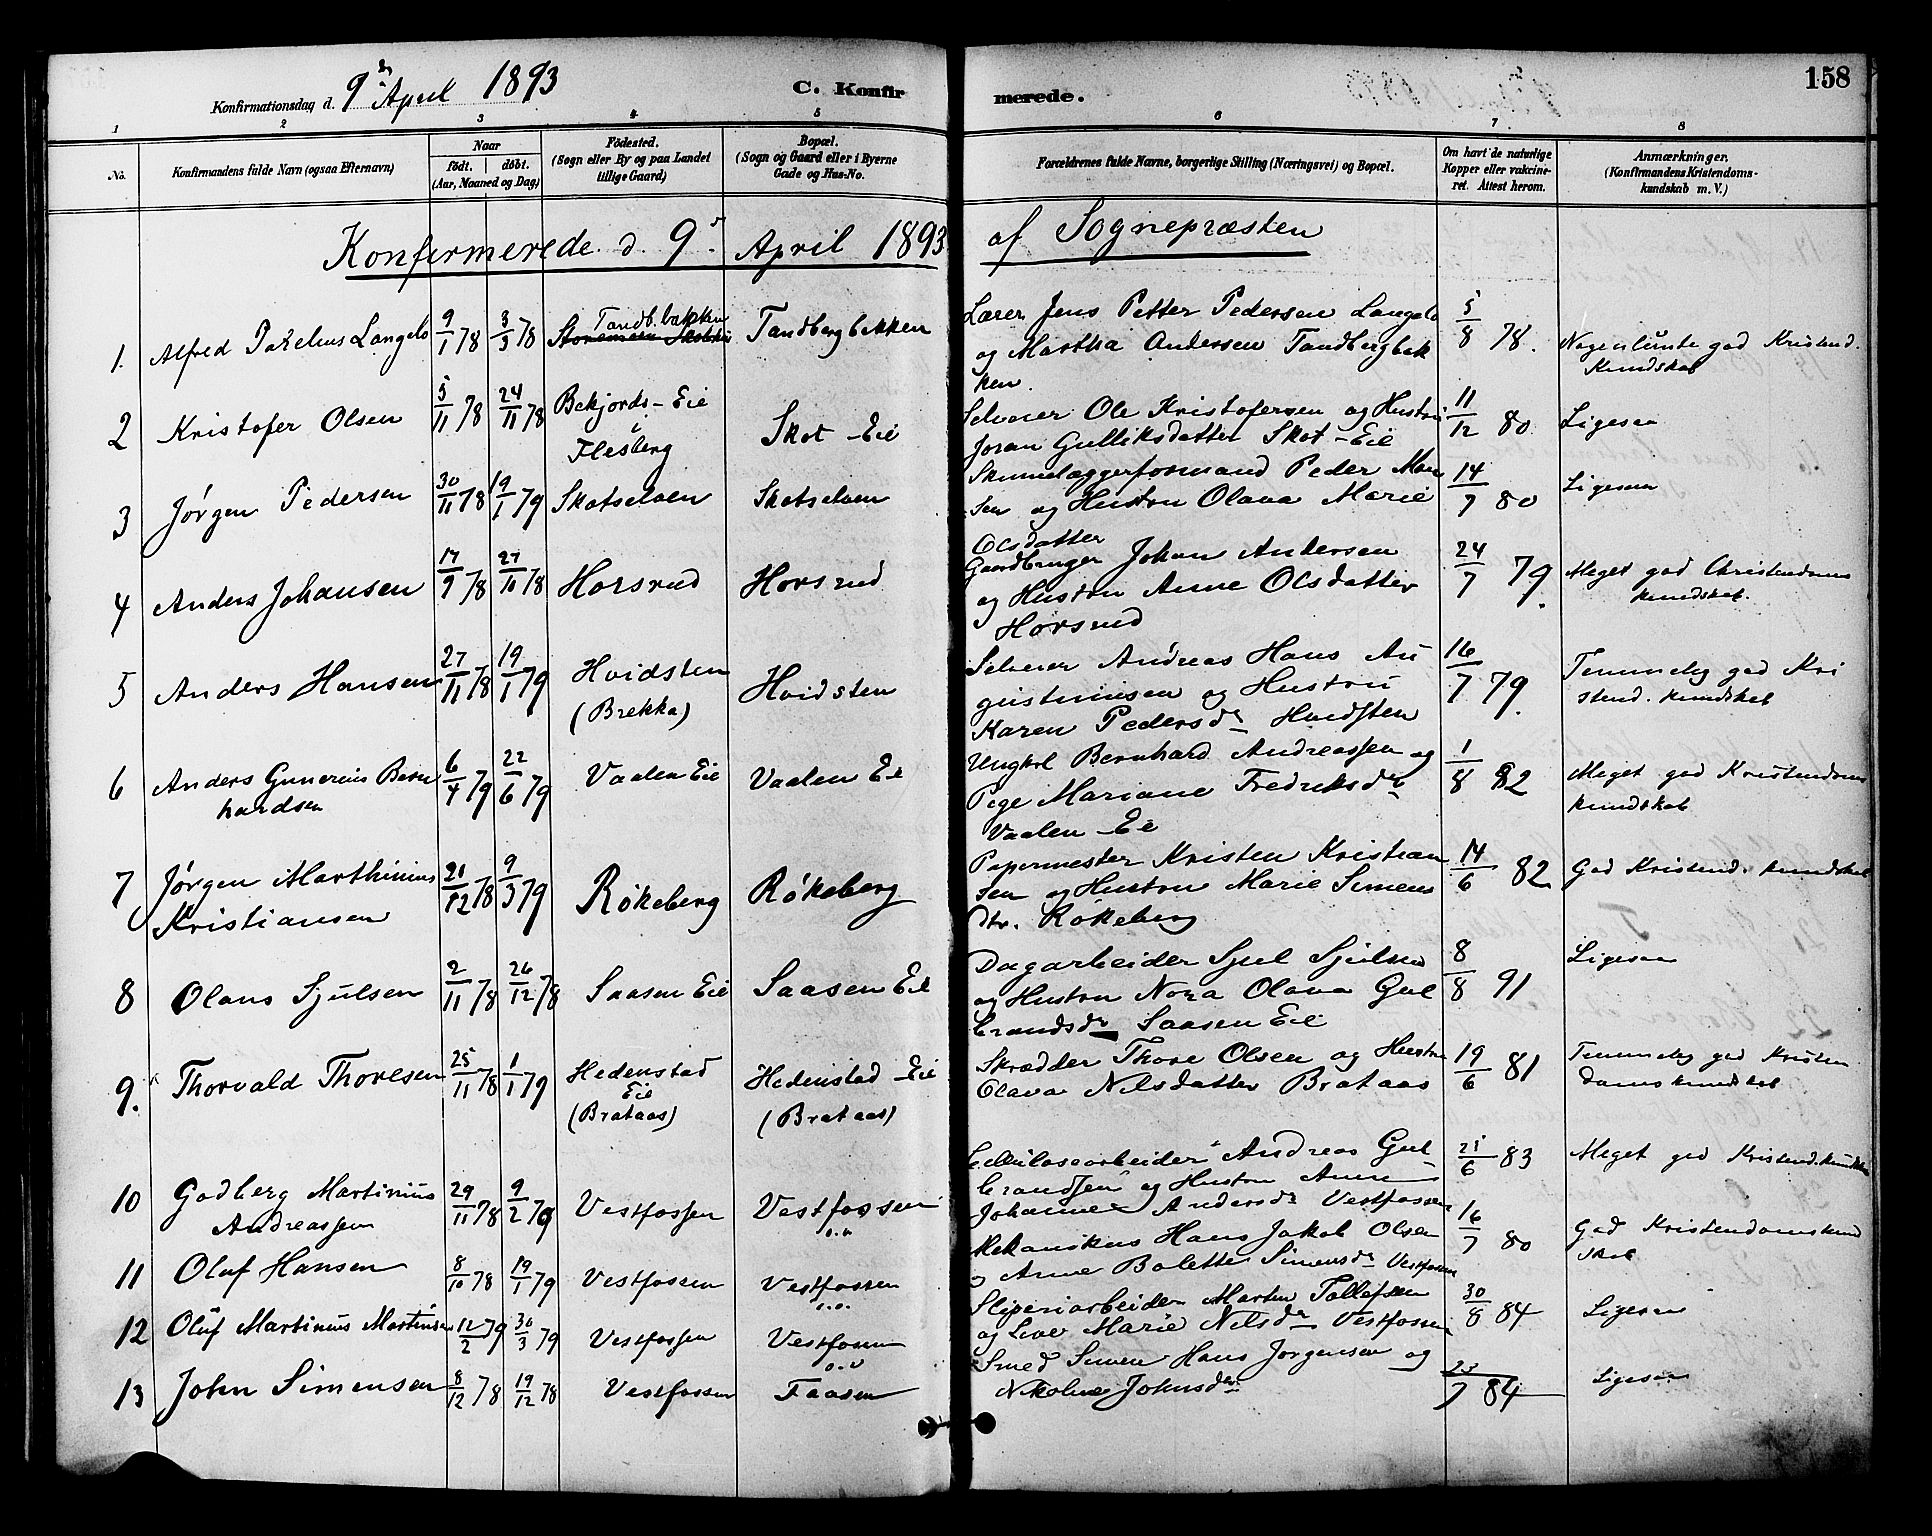 Konfirmationsdag d. 9de April 1893
C. Konfir
merede.
158
1 2 3 4 5 6 7 8
No.
Konfirmandens fulde Navn (ogsaa Efternavn)
Naar
födt. döbt.
(Aar, Maaned og Dag)
Födested.
(Sogn eller By og paa Landet
tillige Gaard)
Bopæl.
(Sogn og Gaard eller i Byerne
Gade og Hus-No.
Forældrenes fulde Navne, borgerlige Stilling (Næringsvei) og Bopæl.
Om havt de naturlige
Kopper eller vakcine-
ret. Attest herom.
Anmærkninger.
(Konfirmandens Kristendoms-
kundskab m. V.)
Konfirmerede d 9d April 1893 af Sognepræsten
1. Alfred Langelo 9/1 78 3/3 78 Tandb.bakken Tandbergbakken
Lærer Jens Petter Pedersen Langelo
og Martha Andersen Tandbergbak
ken.
5/8 78.
Nogenlunde god Kristend.
kundskab
2 Kristofer Olsen 5/11 78 24/11 78 Bekjords-Eie
i
Flesberg
Skot-Eie
Selveier Ole Kristofersen og Hustru
Joran Gulliksdatter Skot-Eie
11/12 80
Ligesaa
3 Jørgen Pedersen 30/11 78 19/1 79 Skotselven Skotselven
Peder
sen og Hustru Olava Marie
Olsdatter
14/7 80
Ligesaa
4 Anders Johansen 17/9 78 27/10 78 Horsrud Horsrud
Gaardbruger Johan Andersen
og Hustru Anne Olsdatter
Horsrud
24/7 79.
Meget god Christendoms
kundskab.
5 Anders Hansen 27/11 78 19/1 79 Hvidsten
(Brekka)
Hvidsten
Selveier Andreas Hans Au
gustinusen og Hustru
Karen Pedersdr Hvidsten
16/7 79.
Temmelig god Kri
stend. kundskab
6 Anders Gunerius Bern
hardsen
6/4 79 22/6 79 Vaalen Eie Vaalen Eie
Ungkel Bernhard Andreassen og
Pige Mariane Fredriksdr
Vaalen-Eie
1/8 82
Meget god Kristendoms
kundskab
7 Jørgen Marthinius
Kristiansen
21/12 78 9/3 79 Røkeberg Røkeberg
Papermester Kristen Kristian
sen og Hustru Marie Simens
dtr. Røkeberg
14/6 82
God Kristend. kundskab
8 Olaus Sjulsen 2/11 78 26/12 78 Saasen Eie Saasen Eie
Dagarbeider Sjul Sjulsen
og Hustru Nora Olava Gul
brandsdr Saasen Eie
8/8 91
Ligesaa
9. Thorvald Thoresen 25/11 78 1/1 79 Hedenstad
Eie
(Brataas)
Hedenstad-Eie
(Brataas)
Skrædder Thore Olsen og Hustru
Olava Nilsdatter Brataas
19/6 81
Temmelig god Kristen
doms kundskab
10 Godberg Martinius
Andreassen
29/11 78 9/2 79 Vestfossen Vestfossen
Cellulosearbeider Andreas Gul
brandsen og Hustru Anne
Johanne Andersdr Vestfossen
21/6 83
Meget god Kristend. kundskab
11 Oluf Hansen 8/10 78 19/1 79 Vestfossen Vestfossen
Mekanikus Hans Jakob Olsen
o Anne Bolette Simensdr Vestfossen
16/7 80
God Kristendomskund
skab
12 Oluf Martinius Martinsen 12/2 79 30/3 79 Vestfossen Vestfossen
Sliperiarbeider Marten Tollefsen
og Marie Nilsdr Vestfossen
30/8 84
Ligesaa
13 John Simensen 8/12 78 19/12 78 Vestfossen Faasen
Smed Simen Hans Jørgensen og
Nikoline Johnsdr
23/7 84
Ligesaa